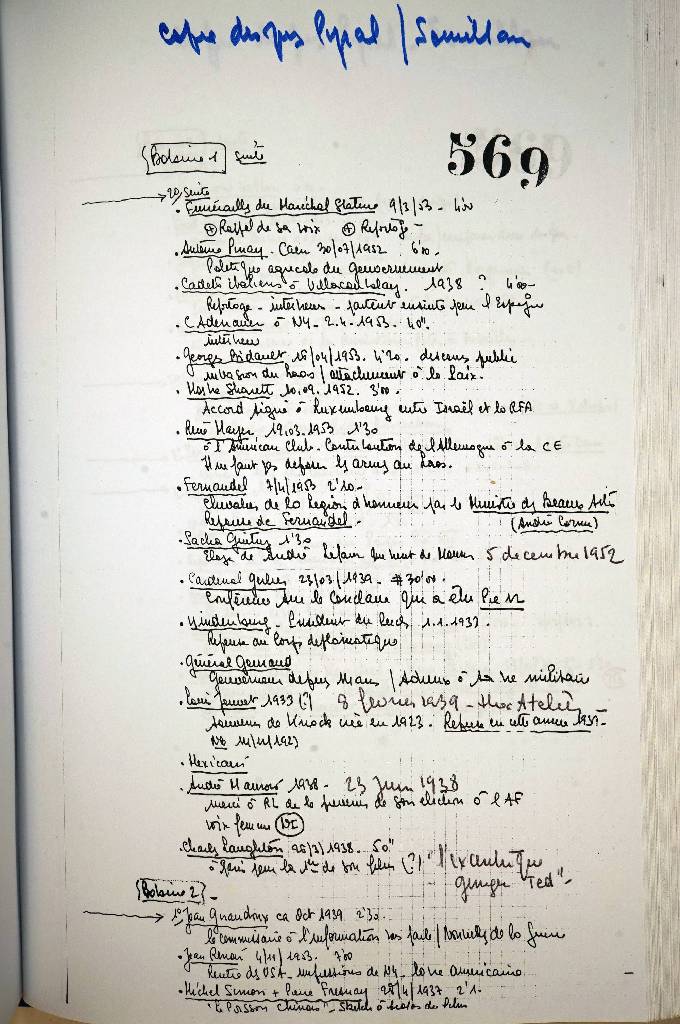 copie disques Pyral /
569
Bobine 1 suite
20, suite
. Funérailles du Maréchal Staline 9/3/53 - 4'00
⊕ Rappel de sa voix ⊕ Reportage -
. Antoine Pinay. Caen 30/07/1952 6'00.
Politique agricole du Gouvernement
. Cadets italiens à Villacoublay. 1938 ? 4'00 -
Reportage - interviews - partent ensuite pour l'Espagne
. C Adenauer à NY - 2.4.1953. 40".
interview
. Georges Bidault 16/04/1953. 4'20. discours public
invasion du Laos / attachement à la Paix.
. Moshe Sharett 10.09.1952. 3'00.
Accord signé à Luxembourg entre Israël et la RFA
. René Mayer 19.03.1953 1'30
à l'American Club - Contribution de l'Allemagne à la CE
Il ne faut pas déposer les armes au Laos.
. Fernandel 7/4/1953 2'10 -
Chevalier de la Légion d'honneur par le Ministre des Beaux Arts
Réponse de Fernandel - (André Cornu)
. Sacha Guitry 1'30
Eloge de André Lefaur qui vient de Mourir 5 decembre 1952
. Cardinal Gerlier 23/03/1939 - 30'00.
Conférence sur le Conclave qui a élu Pie XII
. Hindenburg - Président du Reich 1.1.1933.
Réponse au Corps diplomatique
. Général Gouraud
Gouverneur depuis / Adieux à sa vie militaire
. Louis Jouvet 1939 (?) 8 février 1939 -
Souvenir de Knock créé en 1923. Reprise en cette année 1939 -
. Mexicains
. André Maurois 1938 - 23 Juin 1938
merci à RL de le prévenir de son élection à l'AF
voix femme
. Charles Laughton 25/3/1938. 50"
à Paris pour la 1ère de son film (?) "l'exentrique
Ginger Ted" -
Bobine 2 -
1°, Jean Giraudoux ca Oct 1939 2'30.
le commissaire à l'information vos faits / Nouvelles de la Guerre
. Jean Renoir 4/11/1953. 7'00
Rentre des USA - impressions de NY - la vie américaine
. Michel Simon + Pierre Fresnay 28/4/1937 2'1.
"Le Poisson Chinois" - Sketch à propos de film